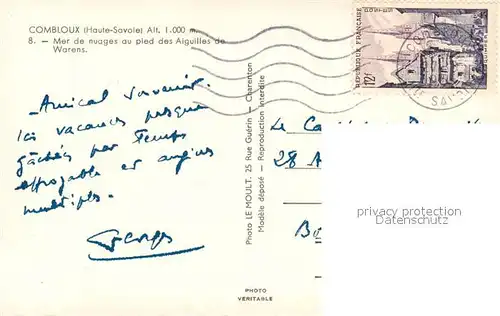 COMBLOUX (Haute-Savoie) Alt. 1.000 m.
8. — Mer de nuages au pied des Aiguilles de
Warens.
Amical souvenir.
Ici vacances presque
gâchées par temps
effroyable et angines
multiples.
Georges
Photo LE MOULT, 25 Rue Guérin — Charenton
Modèle déposé — Reproduction interdite
PHOTO
VERITABLE
REPUBLIQUE FRANÇAISE
12f
Le
28 A
privacy protection
oldthing.de